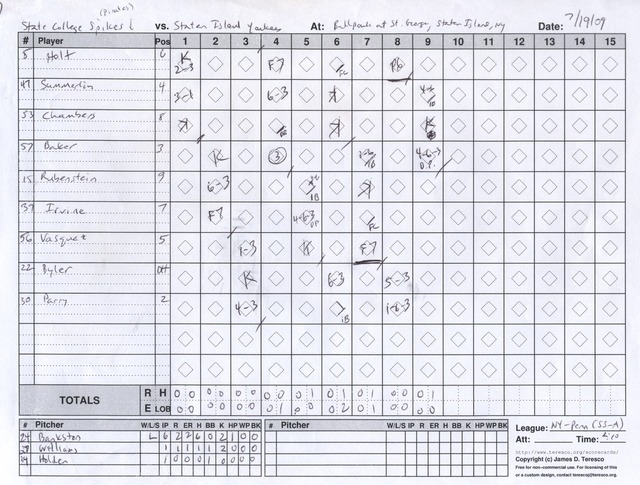 (Pirates)
State College Spikes vs. Staten Island Yankees At: Ballpark at St. George, Staten Island, NY Date: 7/19/09
# Player Pos 1 2 3 4 5 6 7 8 9 10 11 12 13 14 15
5 Holt 6 K 2-3 F7 FC P6
47 Summerlin 4 3-1 6-3 K
53 Chambers 8 K K K
57 Baker 3 K 3 4-6-3 D.P.
15 Rubenstein 9 6-3 1B K
37 Irvine 7 F7 4-6-3 DP FC
56 Vasquez 5 1-3 K F7
22 Byler DH K 6-3 5-3
30 Parry 2 4-3 1B 1-6-3
TOTALS
R H 0 0 0 0 0 0 0 0 0 1 0 1 0 1 0 0 0 1
E LOB 0 0 0 0 0 0 0 1 0 0 0 2 0 1 0 0 0 0
# Pitcher W/L/S IP R ER H BB K HP WP BK # Pitcher W/L/S IP R ER H BB K HP WP BK
24 Bankston L 6 2 2 6 0 2 1 0 0
Williams 1 1 1 1 1 2 0 0 0
Holden 1 0 0 0 1 0 0 0
League: NY-Penn (SS-A)
Att: Time:
http://www.teresco.org/scorecards/
Copyright (c) James D. Teresco
Free for non-commercial use. For licensing of this
or a custom design, contact teresco@teresco.org.